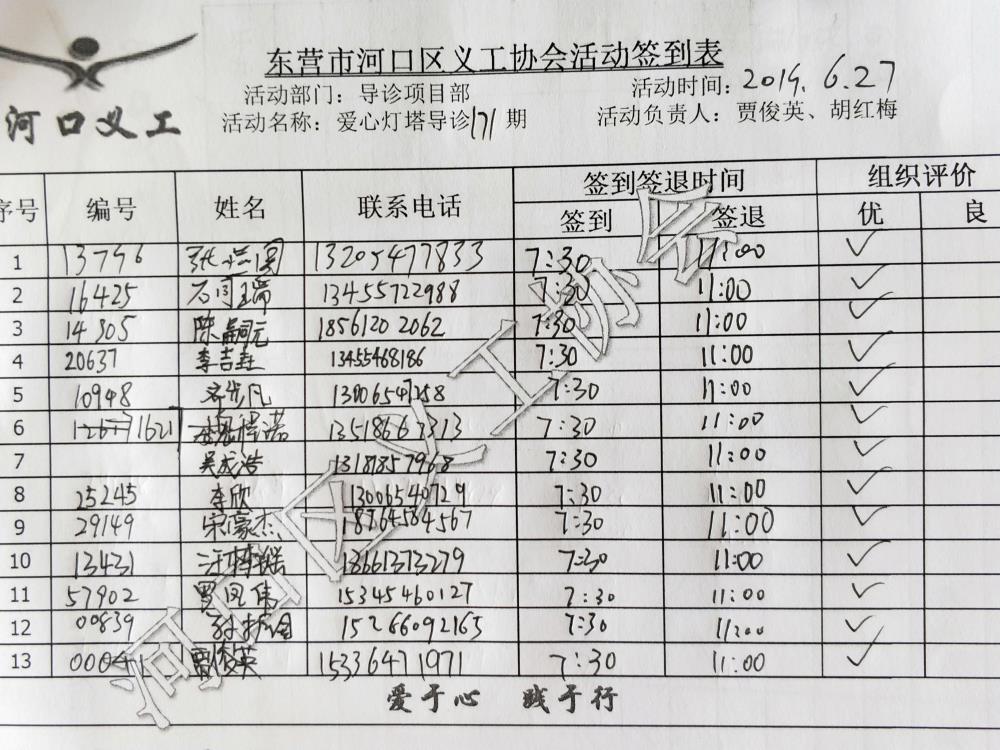 东营市河口区义工协会活动签到表
活动部门：导诊项目部 活动时间：2019.6.27
河口义工 活动名称：爱心灯塔导诊171期 活动负责人：贾俊英、胡红梅
序号 编号 姓名 联系电话 签到签退时间 组织评价
签到 签退 优 良
1 13796 13205477833 7:30 11:00 ✓
2 16425 13455722988 7:30 11:00 ✓
3 14305 陈嗣元 18561202062 7:30 11:00 ✓
4 20637 李吉垚 13455468186 7:30 11:00 ✓
5 10948 7:30 11:00 ✓
6 13518667313 7:30 11:00 ✓
7 吴成浩 13181857968 7:30 11:00 ✓
8 25245 李欣 13006540729 7:30 11:00 ✓
9 29149 宋濠杰 18764584567 7:30 11:00 ✓
10 13431 18661373279 7:30 11:00 ✓
11 57902 罗凤伟 15345460127 7:30 11:00 ✓
12 00839 15266092165 7:30 11:00 ✓
13 00041 贾俊英 15336471971 7:30 11:00 ✓
爱于心 践于行
河口区义工协会